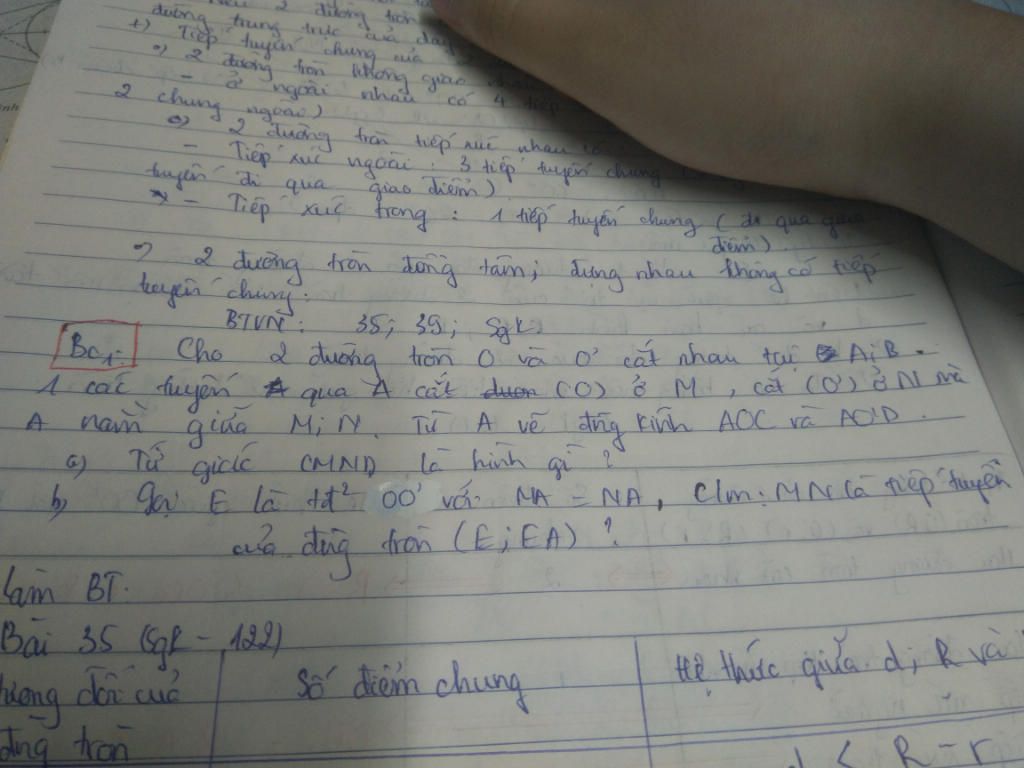 2 đường tròn
đường trung trực của dây
+) Tiếp tuyến chung của
o) 2 đường tròn không giao nhau
- ở ngoài nhau có 4 tiếp
2 chung ngoài)
o) 2 đường tròn tiếp xúc nhau có
- Tiếp xúc ngoài: 3 tiếp tuyến chung
tuyến đi qua giao điểm)
- Tiếp xúc trong: 1 tiếp tuyến chung (đi qua giao
điểm).
o) 2 đường tròn đồng tâm; đựng nhau không có tiếp
tuyến chung.
BTVN: 35; 39; Sgk
Bc1: Cho 2 đường tròn O và O' cắt nhau tại A; B.
1 cát tuyến qua A cắt (O) ở M, cắt (O') ở N và
A nằm giữa M; N. Từ A vẽ đng kính AOC và AO'D.
a) Tứ giác CMND là hình gì?
b) Gọi E là tđ² OO' với MA = NA, Clm: MN là tiếp tuyến
của đng tròn (E; EA)?
Làm BT.
Bài 35 (Sgk - 122)
tương đối của Số điểm chung Hệ thức giữa d; R và
đng tròn
d < R - r